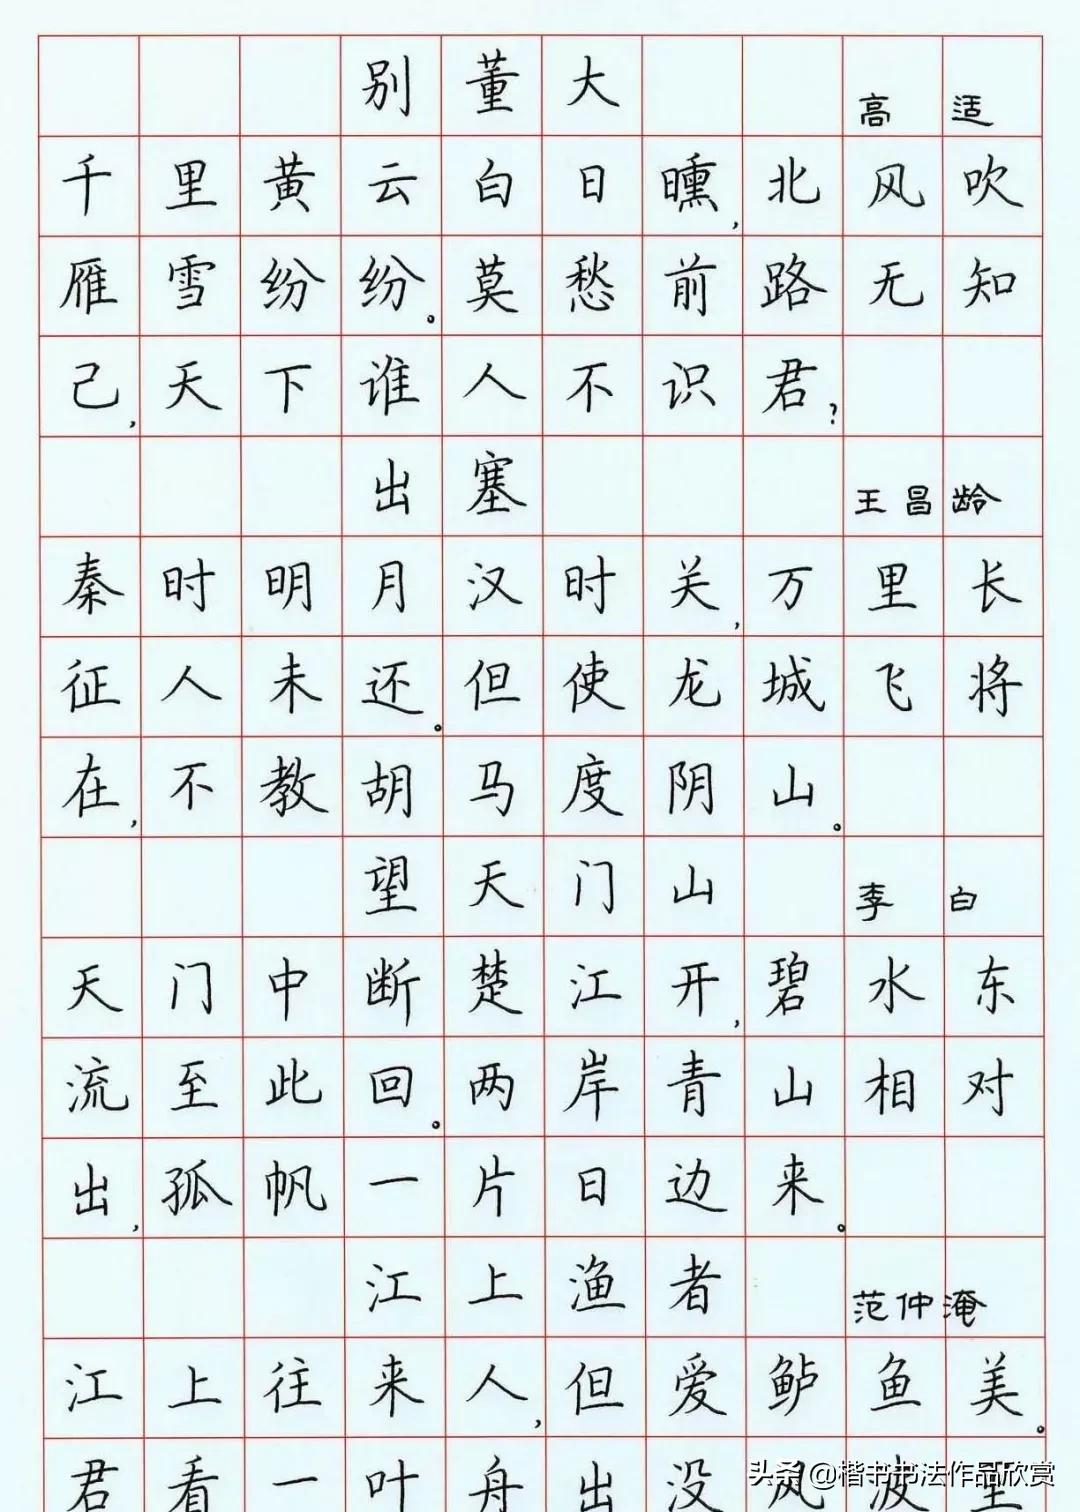 别董大 高适
千里黄云白日曛,北风吹
雁雪纷纷。莫愁前路无知
己,天下谁人不识君?
出塞 王昌龄
秦时明月汉时关,万里长
征人未还。但使龙城飞将
在,不教胡马度阴山。
望天门山 李白
天门中断楚江开,碧水东
流至此回。两岸青山相对
出,孤帆一片日边来。
江上渔者 范仲淹
江上往来人,但爱鲈鱼美。
君看一叶舟出没风波里
头条 @楷书书法作品欣赏